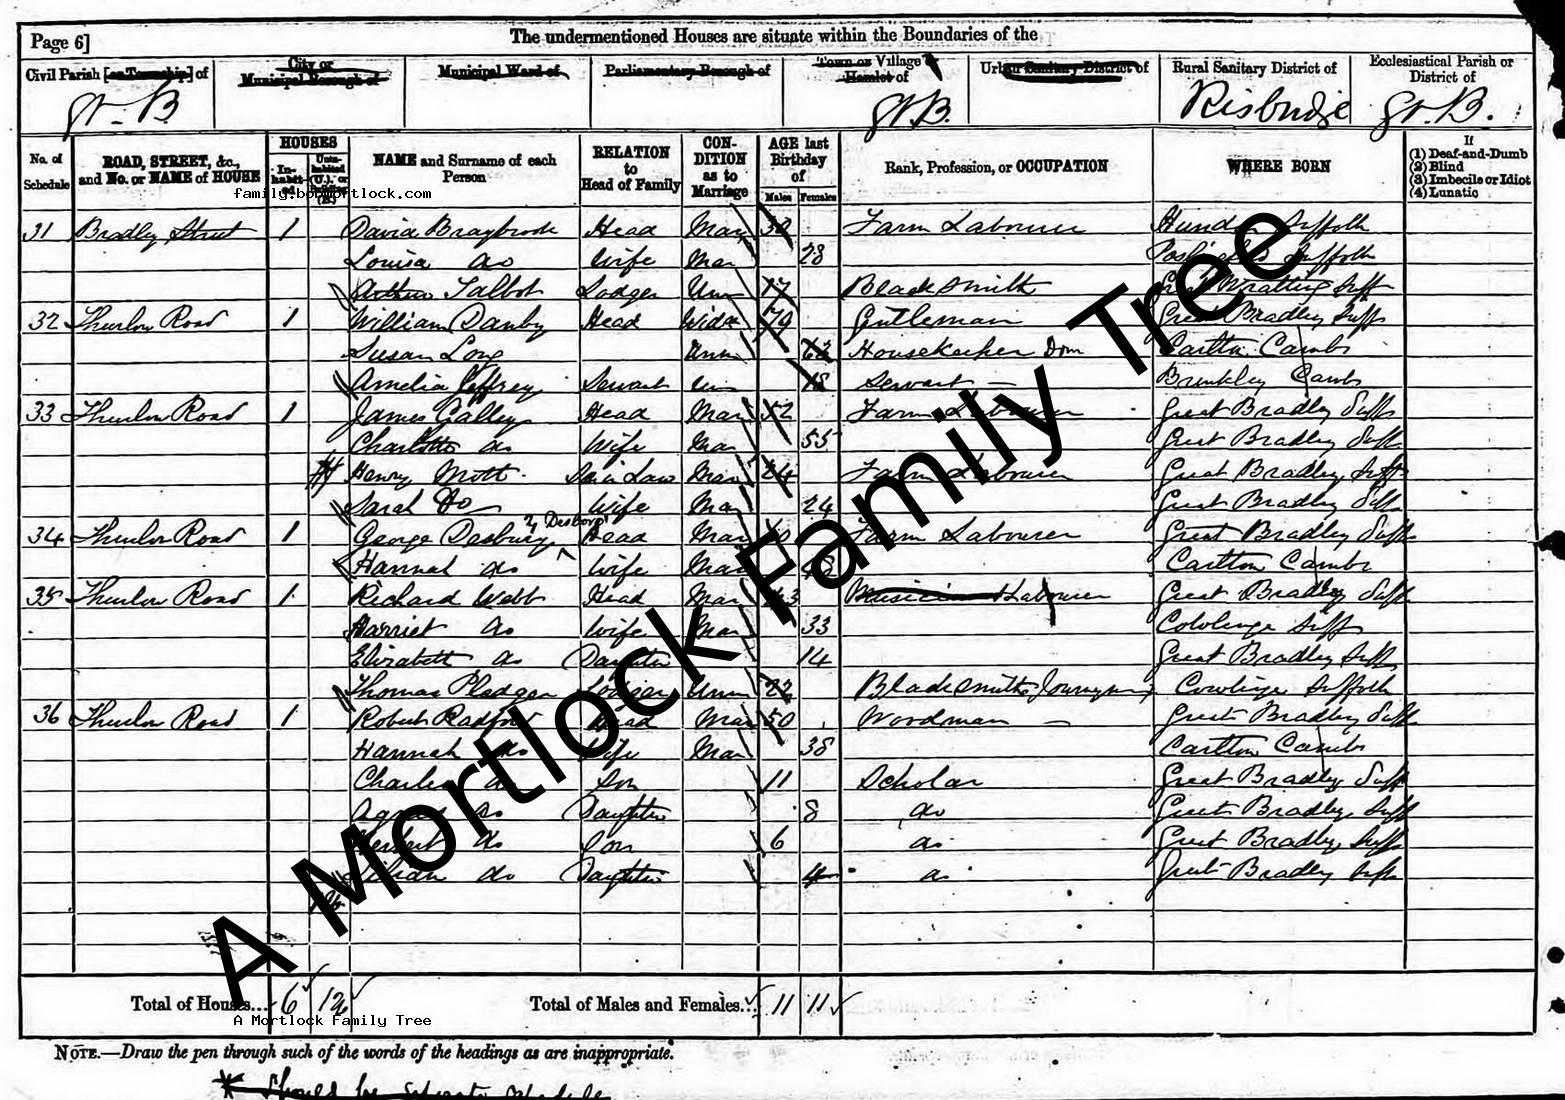 Page 6]
The undermentioned Houses are situate within the Boundaries of the
Civil Parish [or Township] of
City or Municipal Borough of
Municipal Ward of
Parliamentary Borough of
Town or Village or Hamlet of
Urban Sanitary District of
Rural Sanitary District of
Ecclesiastical Parish or District of
Gt. B
Gt. B.
Risbridge
Gt. B.
No. of Schedule
ROAD, STREET, &c., and No. or NAME of HOUSE
HOUSES
In-habit-ed
Unin-habited (U.), or Building (B.)
NAME and Surname of each Person
RELATION to Head of Family
CON-DITION as to Marriage
AGE last Birthday of
Males
Females
Rank, Profession, or OCCUPATION
WHERE BORN
If
(1) Deaf-and-Dumb
(2) Blind
(3) Imbecile or Idiot
(4) Lunatic
family.bobmortlock.com
31 Bradley Street 1 David Braybrook Head Mar Farm Labourer Suffolk
Louisa do Wife Mar 28 Suffolk
Arthur Talbot Lodger Unm 17 Blacksmith Great Wratting Suff
32 Thurlow Road 1 William Danby Head Widr 79 Gentleman Great Bradley Suff
Susan Long Unm 62 Housekeeper Dom Carlton Cambs
Amelia Jeffrey Servant Un 18 Servant — Brinkley Cambs
33 Thurlow Road 1 James Galley Head Mar 52 Farm Labourer Great Bradley Suff
Charlotte do Wife Mar 55 Great Bradley Suff
Henry Mott Son in Law Mar 24 Farm Labourer Great Bradley Suff
Sarah Do Wife Mar 24 Great Bradley Suff
34 Thurlow Road 1 George Desbury ? Desboro' Head Mar Farm Labourer Great Bradley Suff
Hannah do Wife Mar Carlton Cambs
35 Thurlow Road 1 Richard Webb Head Mar 43 Labourer Great Bradley Suff
Harriet do Wife Mar 33 Cowlinge Suff
Elizabeth do Daughter 14 Great Bradley Suff
Thomas Pledger Lodger Unm 22 Blacksmiths Journeyman Cowlinge Suffolk
36 Thurlow Road 1 Robert Radford Head Mar 50 Woodman — Great Bradley Suff
Hannah do Wife Mar 38 Carlton Cambs
Charles do Son 11 Scholar Great Bradley Suff
Agnes do Daughter 8 do Great Bradley Suff
Herbert do Son 6 do Great Bradley Suff
Lilian do Daughter 4 do Great Bradley Suff
A Mortlock Family Tree
Total of Houses... 6 12 Total of Males and Females... 11 11
A Mortlock Family Tree
NOTE.—Draw the pen through such of the words of the headings as are inappropriate.
* Should be separate schedule